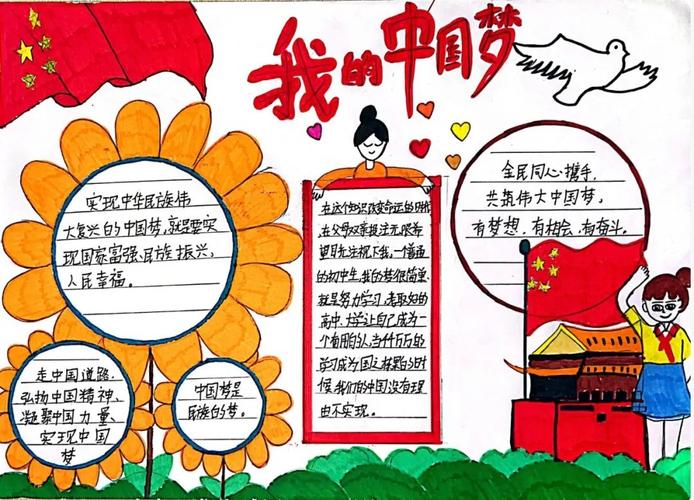 我的中国梦
实现中华民族伟
大复兴的中国梦,就是要实
现国家富强、民族振兴、
人民幸福。
走中国道路
弘扬中国精神、
凝聚中国力量、
实现中国
梦
中国梦是
民族的梦。
在这个知识改变命运的时代
在父母双亲投注无限希
望目光注视下我,一个普通
的初中生,我的梦很简单
就是努力学习,考取好的
高中,大学让自己成为一
个有用的人,当
学习成为国之栋梁的时
候,我们的中国没有理
由不实现。
全民同心携手,
共筑伟大中国梦,
有梦想、有机会、有奋斗。